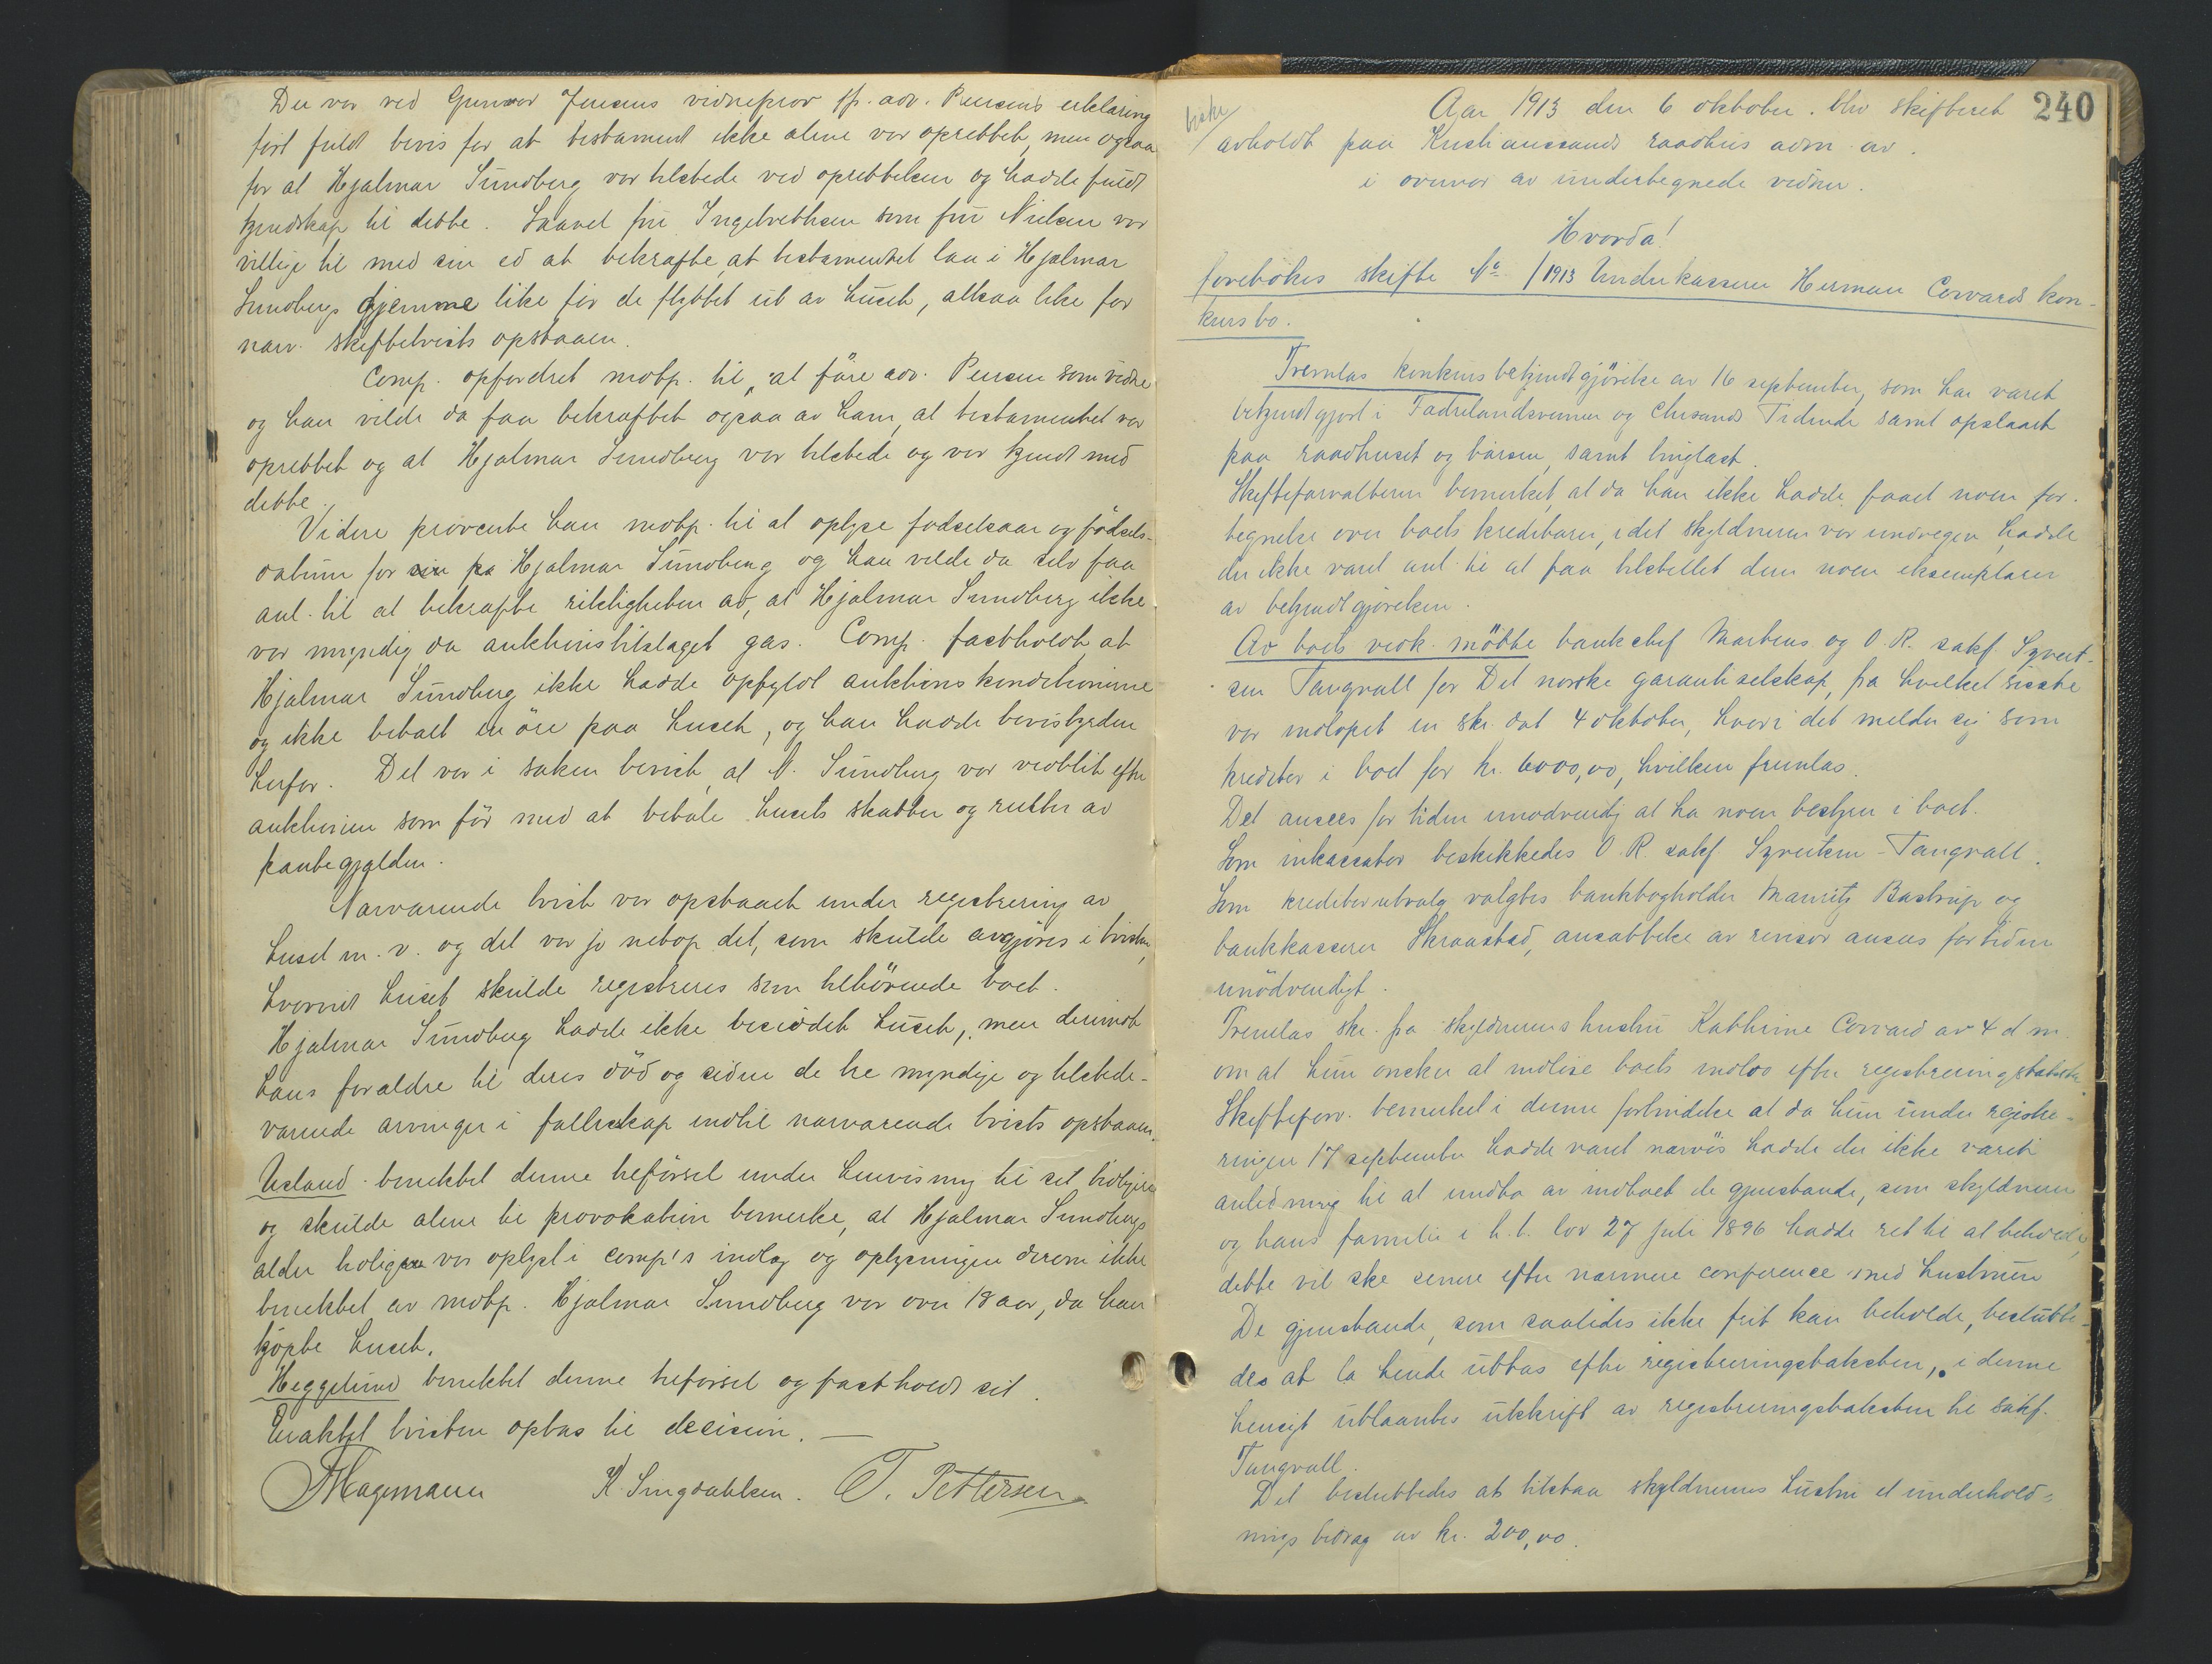 Der var ved Gunvor Jensens vidneprov sp. adv. Pensens erklæring
ført fuldt bevis for at testament ikke alene var oprettet, men ogsaa
for at Hjalmar Sundberg var tilstede ved oprettelsen og hadde fuldt
kjendskap til dette. Saavel fru Ingebrethsen som fru Nielsen var
villige til med sin ed at bekræfte at testamentet laa i Hjalmar
Sundbergs gjemme like før de flyttet ut av huset, altsaa like før
nærv. skiftetvists opstaaen.
Comp. opfordret motp. til at føre adv. Pensen som vidne
og han vilde da faa bekræftet ogsaa av ham, at testamentet var
oprettet og at Hjalmar Sundberg var tilstede og var kjendt med
dette.
Videre provocerte han motp. til at oplyse fødselsaar og fødsels-
datum for Hjalmar Sundberg og han vilde da selv faa
anl. til at bekræfte riktigheten av, at Hjalmar Sundberg ikke
var myndig da auktionstilslaget gas. Comp. fastholdt at
Hjalmar Sundberg ikke hadde opfyldt auktionskonditionerne
og ikke betalt en øre paa huset, og han hadde bevisbyrden
herfor. Det var i saken bevist, at N. Sundberg var vedblit efter
auktionen som før med at betale husets skatter og renter av
pantegjælden.
Nærværende tvist var opstaaet under registrering av
huset m. v. og det var jo netop det, som skulde avgjøres i tvisten,
hvorvidt huset skulde registreres som tilhørende boet.
Hjalmar Sundberg hadde ikke besiddet huset, men derimot
hans forældre til deres død og siden de tre myndige og tilstede-
værende arvinger i fællesskap indtil nærværende tvists opstaaen.
Usland benektet denne tilførsel under henvisning til sit tidligere
og skulde alene til provokation bemerke, at Hjalmar Sundbergs
alder var oplyst i comp's indlæg og oplysningen derom ikke
benektet av motp. Hjalmar Sundberg var over 18 aar, da han
kjøpte huset.
Heggelund benektet denne tilførsel og fastholdt sit.
Eraktet tvisten optas til decision. —
Hagemann K. Singdahlsen. T. Pettersen
240
Aar 1913 den 6 oktober blev skifteret
avholdt paa Kristianssands raadhus adm. av
i overvær av undertegnede vidner.
Hvorda!
foretokes skifte No /1913 Underkasserer Herman Corvards kon-
kursbo.
Fremlas konkursbekjendtgjørelse av 16 september, som har været
bekjendtgjort i Fædrelandsvennen og Chrsands Tidende samt opslaaet
paa raadhuset og børsen, samt tinglæst.
Skifteforvalteren bemerket, at da han ikke hadde faaet noen for-
tegnelse over boets kreditorer, idet skyldneren var undvegen, hadde
der ikke været anl. til at faa tilstillet dem noen eksemplarer
av bekjendtgjørelsen.
Av boets vedk. møtte bankchef Martens og O. R. sakf. Syvert-
sen Tangvall for Det norske garantiselskap, fra hvilket sidste
var indløpet en skr. dat 4 oktober, hvori det melder sig som
kreditor i boet for kr. 6000,00, hvilken fremlas.
Det ansees for tiden unødvendig at ha noen bestyrer i boet.
Som inkassator beskikkedes O. R. sakf. Syvertsen-Tangvall.
Som kreditorutvalg valgtes bankbogholder Mauritz Bastrup og
bankkasserer Skraastad, ansættelse av revisor ansees for tiden
unødvendigt.
Fremlas skr. fra skyldnerens hustru Kathrine Corvard av 4 d m
om at hun ønsker at indløse boets indbo efter registreringstaksten
Skifteforv. bemerket i denne forbindelse at da hun under registre-
ringen 17 september hadde været nærvøs hadde der ikke været
anledning til at undta av indboet de gjenstande, som skyldneren
og hans familie i h. t. lov 27 juli 1896 hadde ret til at beholde,
dette vil ske senere efter nærmere conference med hustruen
De gjenstande, som saaledes ikke frit kan beholde, beslutte-
des at la hende utta efter registreringstaksten, i denne
hensigt utlaantes utskrift av registreringstaksten til sakf.
Tangvall.
Det besluttedes at tilstaa skyldnerens hustru et underhold-
nings bidrag av kr. 200,00.